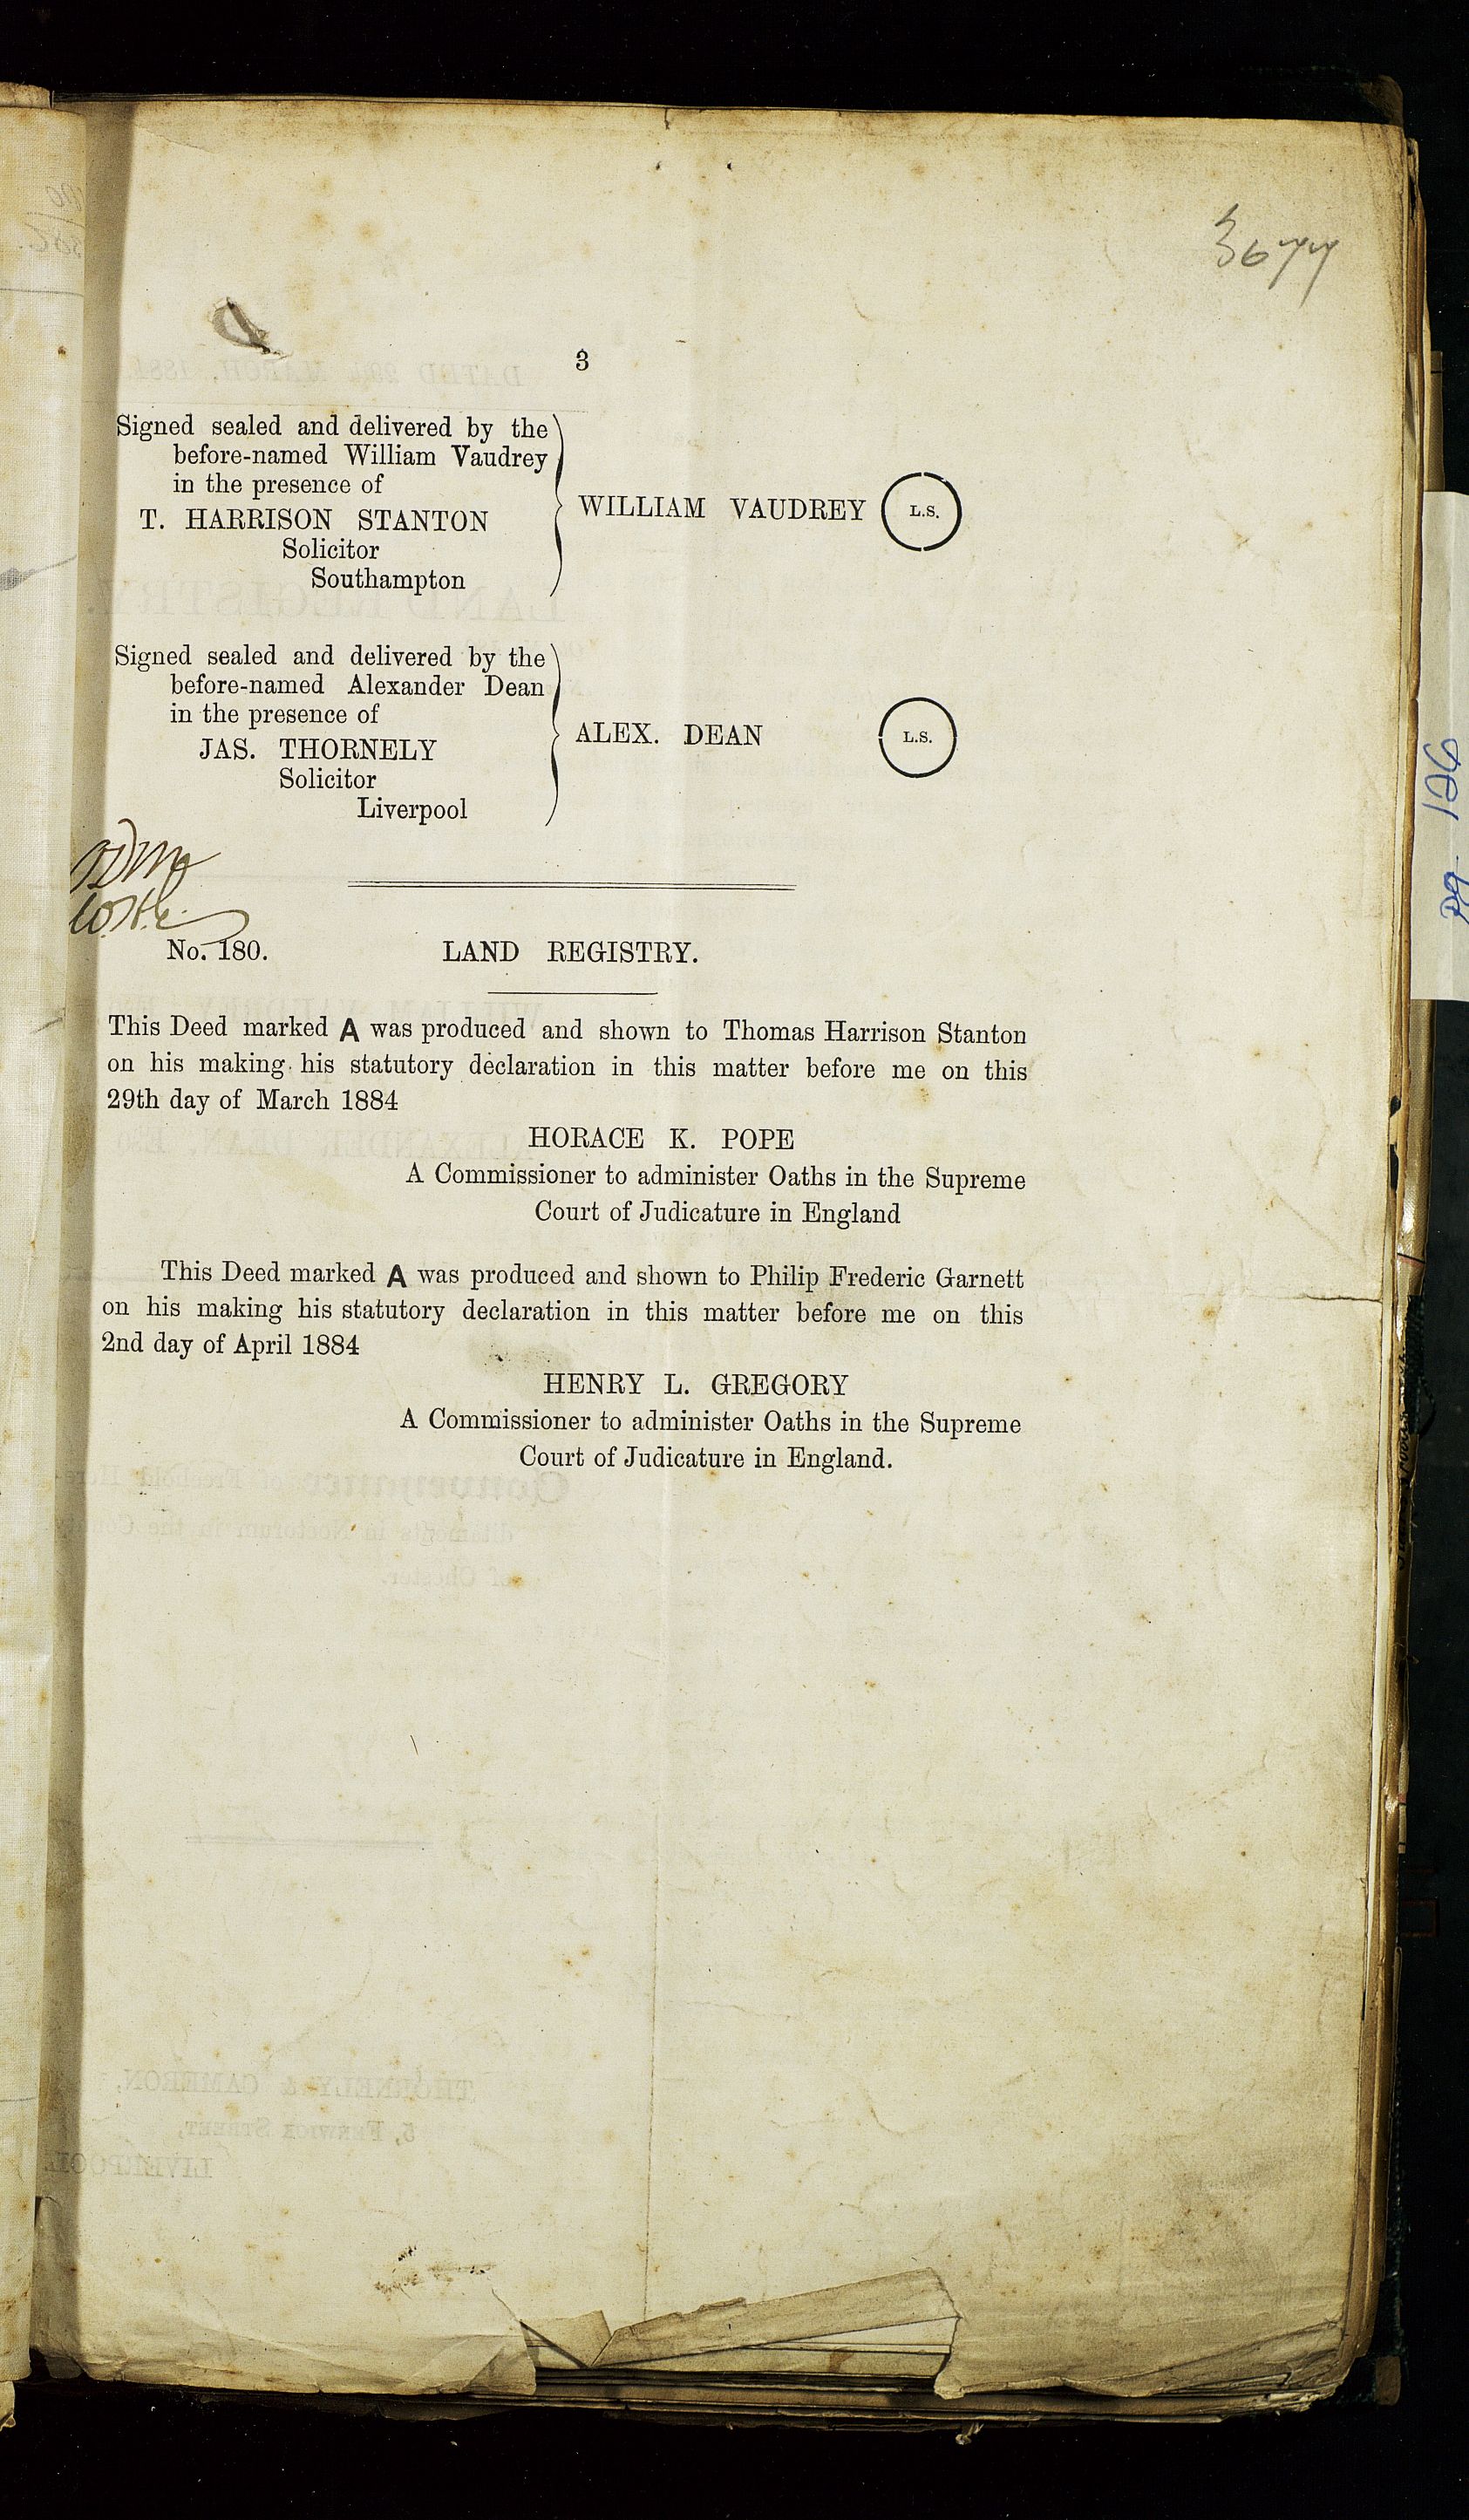 3677
3
Signed sealed and delivered by the
before-named William Vaudrey
in the presence of
T. HARRISON STANTON
Solicitor
Southampton
WILLIAM VAUDREY L.S.
Signed sealed and delivered by the
before-named Alexander Dean
in the presence of
JAS. THORNELY
Solicitor
Liverpool
ALEX. DEAN L.S.
No. 180. LAND REGISTRY.
This Deed marked A was produced and shown to Thomas Harrison Stanton
on his making his statutory declaration in this matter before me on this
29th day of March 1884
HORACE K. POPE
A Commissioner to administer Oaths in the Supreme
Court of Judicature in England
This Deed marked A was produced and shown to Philip Frederic Garnett
on his making his statutory declaration in this matter before me on this
2nd day of April 1884
HENRY L. GREGORY
A Commissioner to administer Oaths in the Supreme
Court of Judicature in England.
pg 126